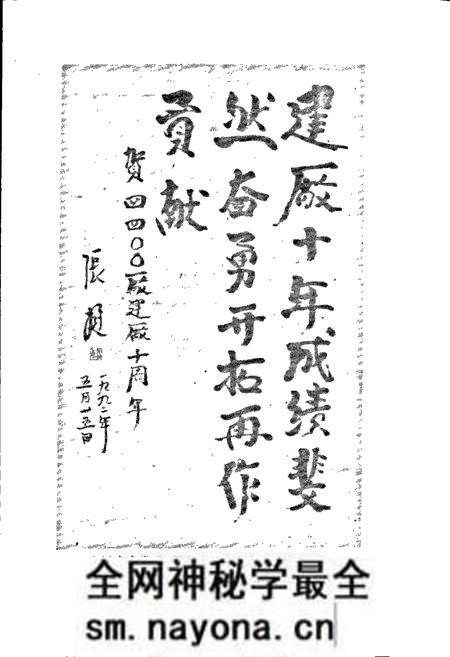 建厰十年成绩斐
然奋勇开拓再作
贡献
贺四四〇〇厰建厰十周年
張
一九九二年
五月廿五日
全网神秘学最全
sm.nayona.cn